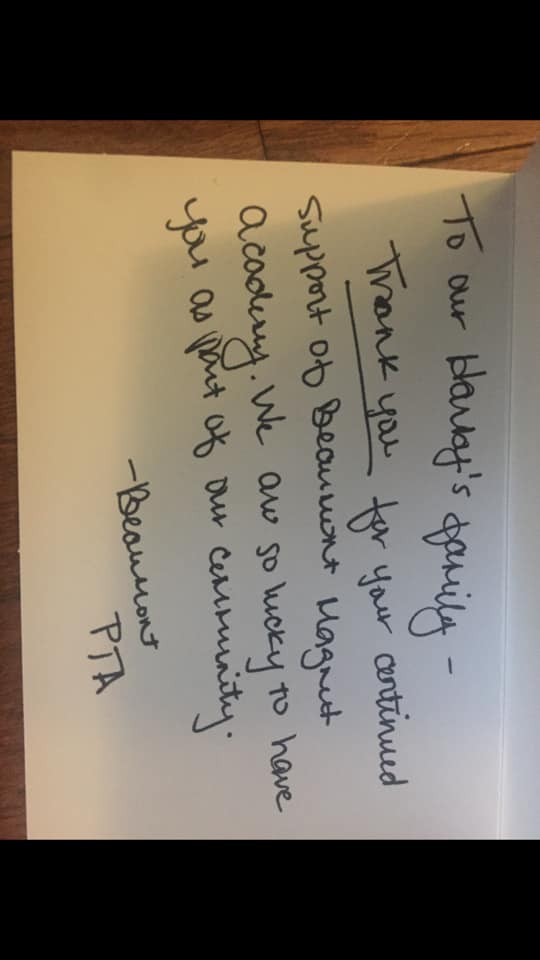 To our Harby's family -
Thank you for your continued
support of Beaumont Magnet
academy. We are so lucky to have
you as part of our community.
-Beaumont
PTA